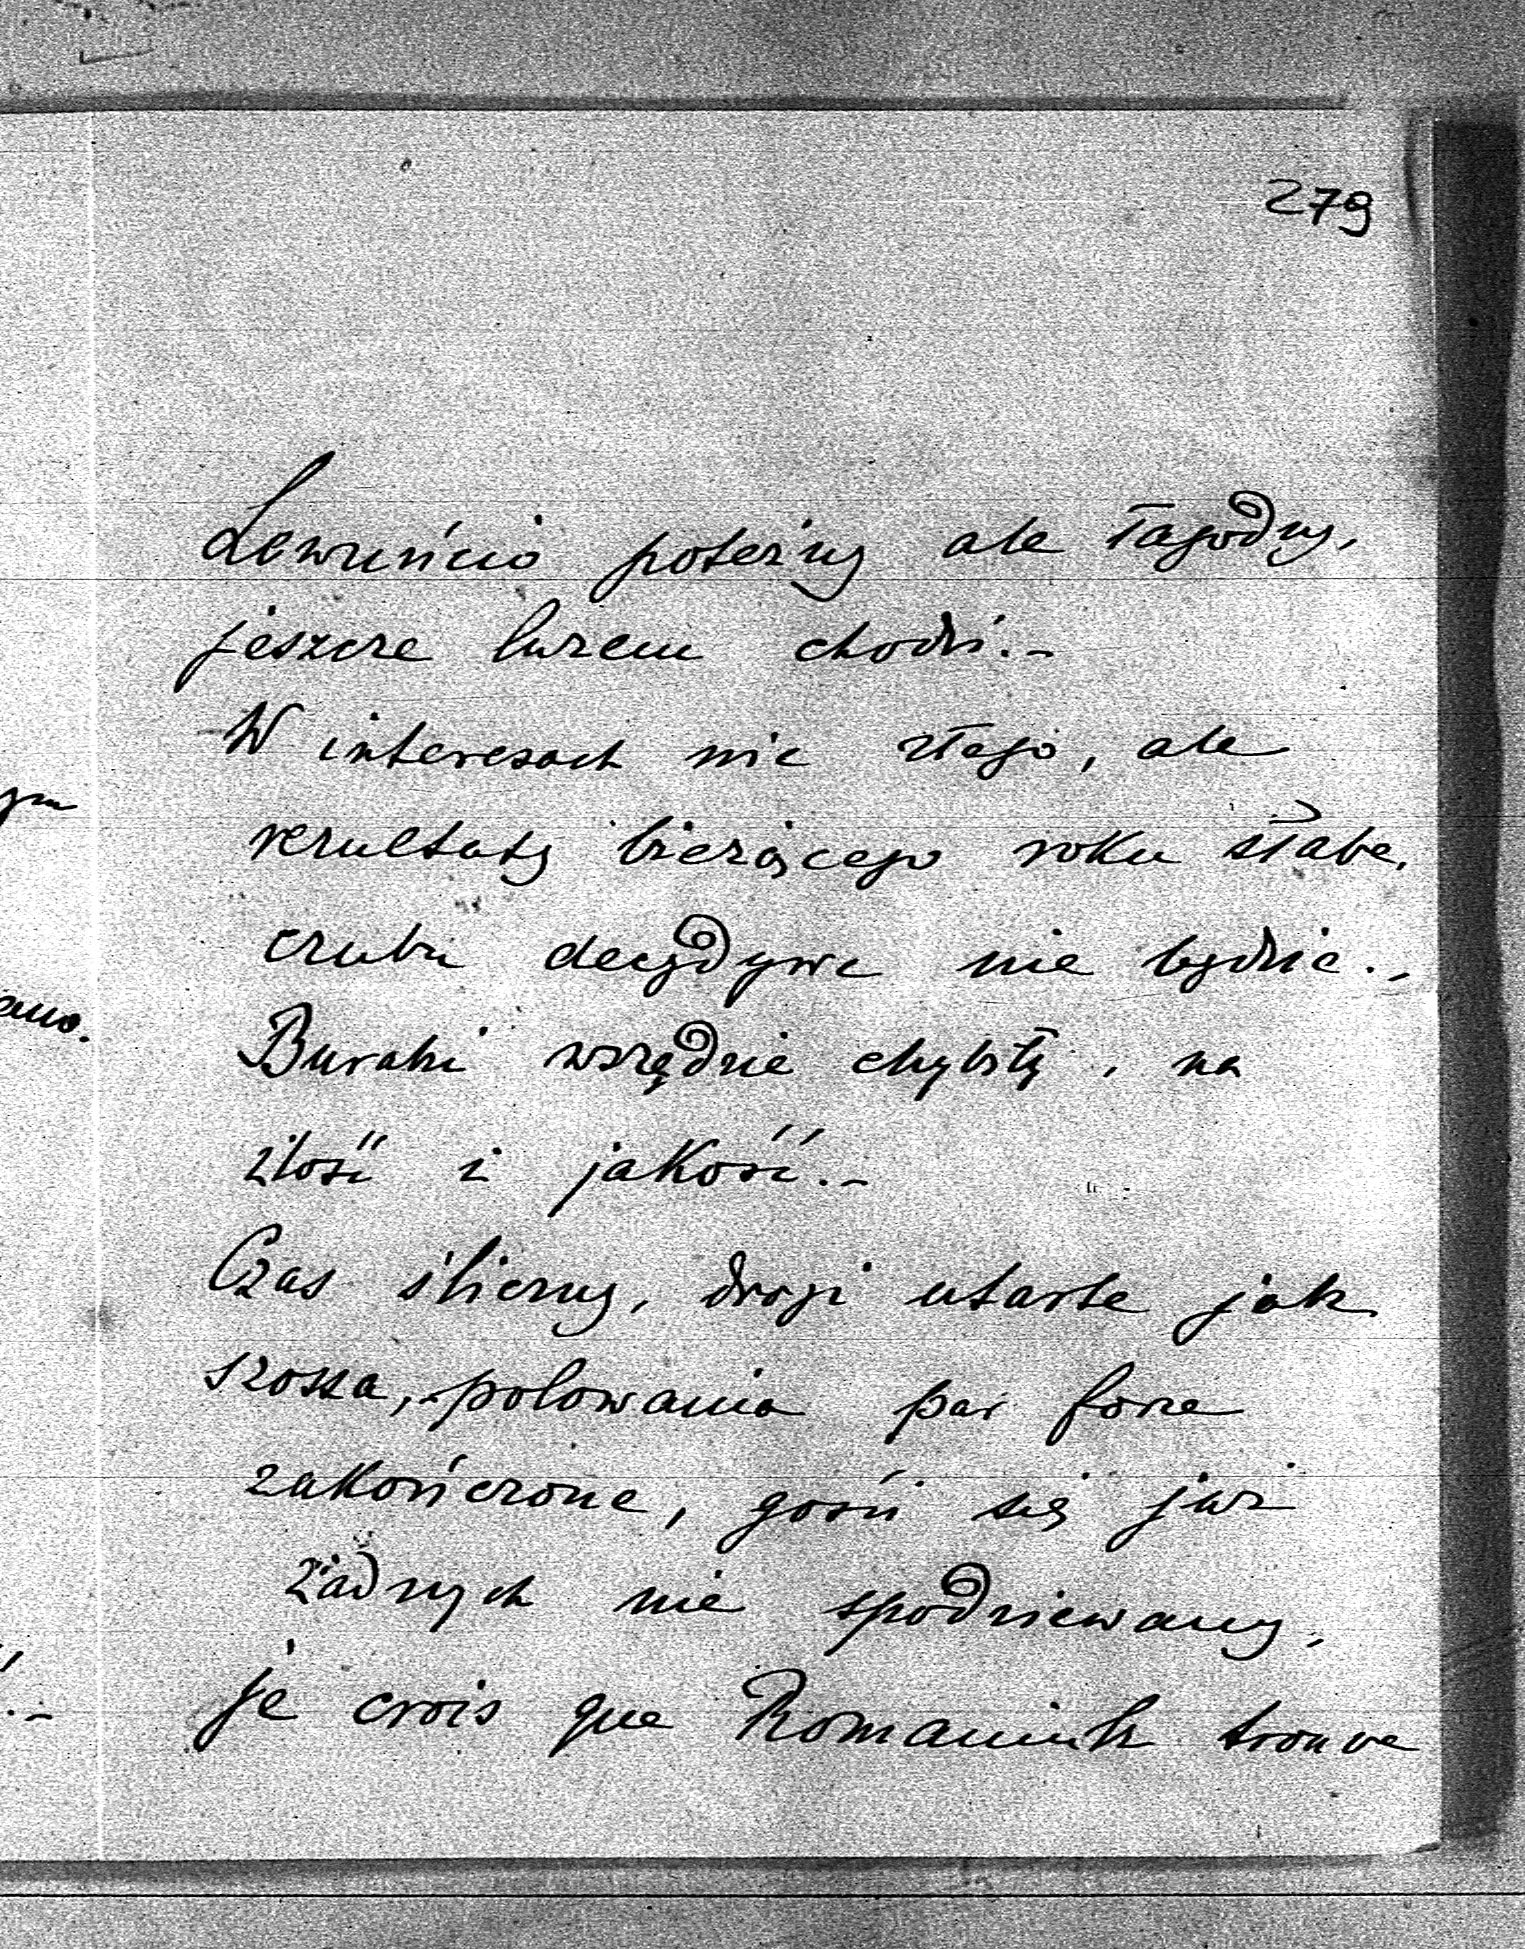 279
Lewuńcio potężny ale łagodny,
jeszcze luzem chodzi.-
W interesach nic złego, ale
rezultaty bieżącego roku słabe,
czuba decydywe nie będzie.-
Buraki wszędzie chybiły, na
ilość i jakość.-
Czas śliczny, drogi utarte jak
szossa, polowania par force
zakończone, gości się już
żadnych nie spodziewamy,
je crois que Romaniuk trouve
ym
ano.